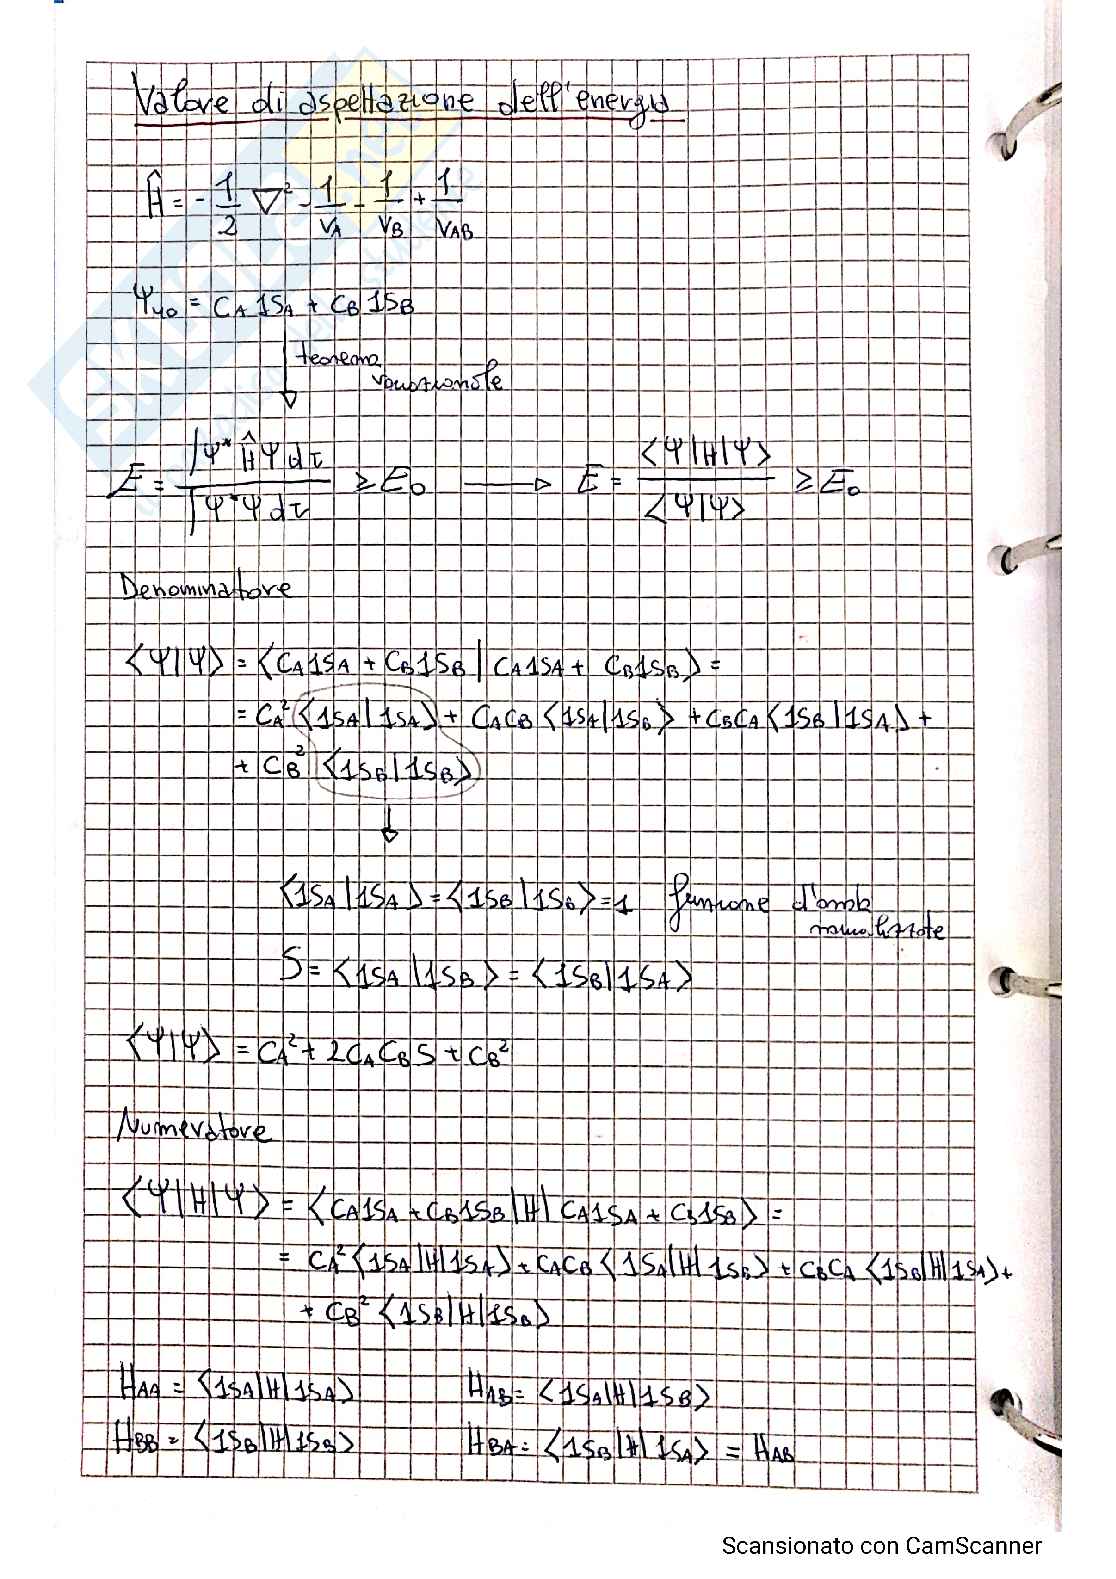 Valore di aspettazione dell'energia
Ĥ = - 1/2 ∇² - 1/rA - 1/rB + 1/rAB
ΨMO = CA 1SA + CB 1SB
teorema
variazionale
E = ∫Ψ* Ĥ Ψ dτ / ∫Ψ*Ψ dτ ≥ E₀ → E = ⟨Ψ|H|Ψ⟩ / ⟨Ψ|Ψ⟩ ≥ E₀
Denominatore
⟨Ψ|Ψ⟩ = ⟨CA 1SA + CB 1SB | CA 1SA + CB 1SB⟩ =
= CA² ⟨1SA|1SA⟩ + CACB ⟨1SA|1SB⟩ + CBCA ⟨1SB|1SA⟩ +
+ CB² ⟨1SB|1SB⟩
⟨1SA|1SA⟩ = ⟨1SB|1SB⟩ = 1 funzione d'onda
normalizzate
S = ⟨1SA|1SB⟩ = ⟨1SB|1SA⟩
⟨Ψ|Ψ⟩ = CA² + 2CACBS + CB²
Numeratore
⟨Ψ|H|Ψ⟩ = ⟨CA1SA + CB1SB|H|CA1SA + CB1SB⟩ =
= CA² ⟨1SA|H|1SA⟩ + CACB ⟨1SA|H|1SB⟩ + CBCA ⟨1SB|H|1SA⟩ +
+ CB² ⟨1SB|H|1SB⟩
HAA = ⟨1SA|H|1SA⟩ HAB = ⟨1SA|H|1SB⟩
HBB = ⟨1SB|H|1SB⟩ HBA = ⟨1SB|H|1SA⟩ = HAB
Scansionato con CamScanner